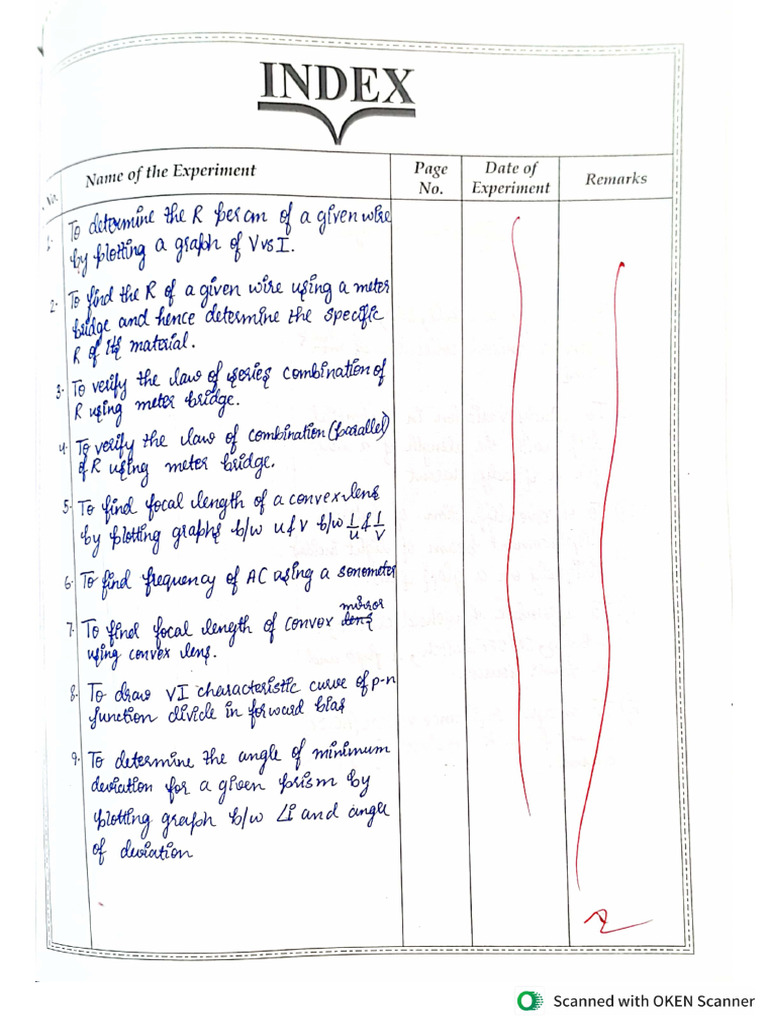 INDEX
No.
Name of the Experiment
Page
No.
Date of
Experiment
Remarks
1. To determine the R per cm of a given wire
by plotting a graph of V vs I.
2. To find the R of a given wire using a meter
bridge and hence determine the specific
R of its material.
3. To verify the law of series combination of
R using meter bridge.
4. To verify the law of combination (parallel)
of R using meter bridge.
5. To find focal length of a convex lens
by plotting graphs b/w u & v b/w 1/u & 1/v
6. To find frequency of AC using a sonometer
mirror
7. To find focal length of convex lens
using convex lens.
8. To draw VI characteristic curve of p-n
function divide in forward bias
9. To determine the angle of minimum
deviation for a given prism by
plotting graph b/w ∠i and angle
of deviation
Scanned with OKEN Scanner